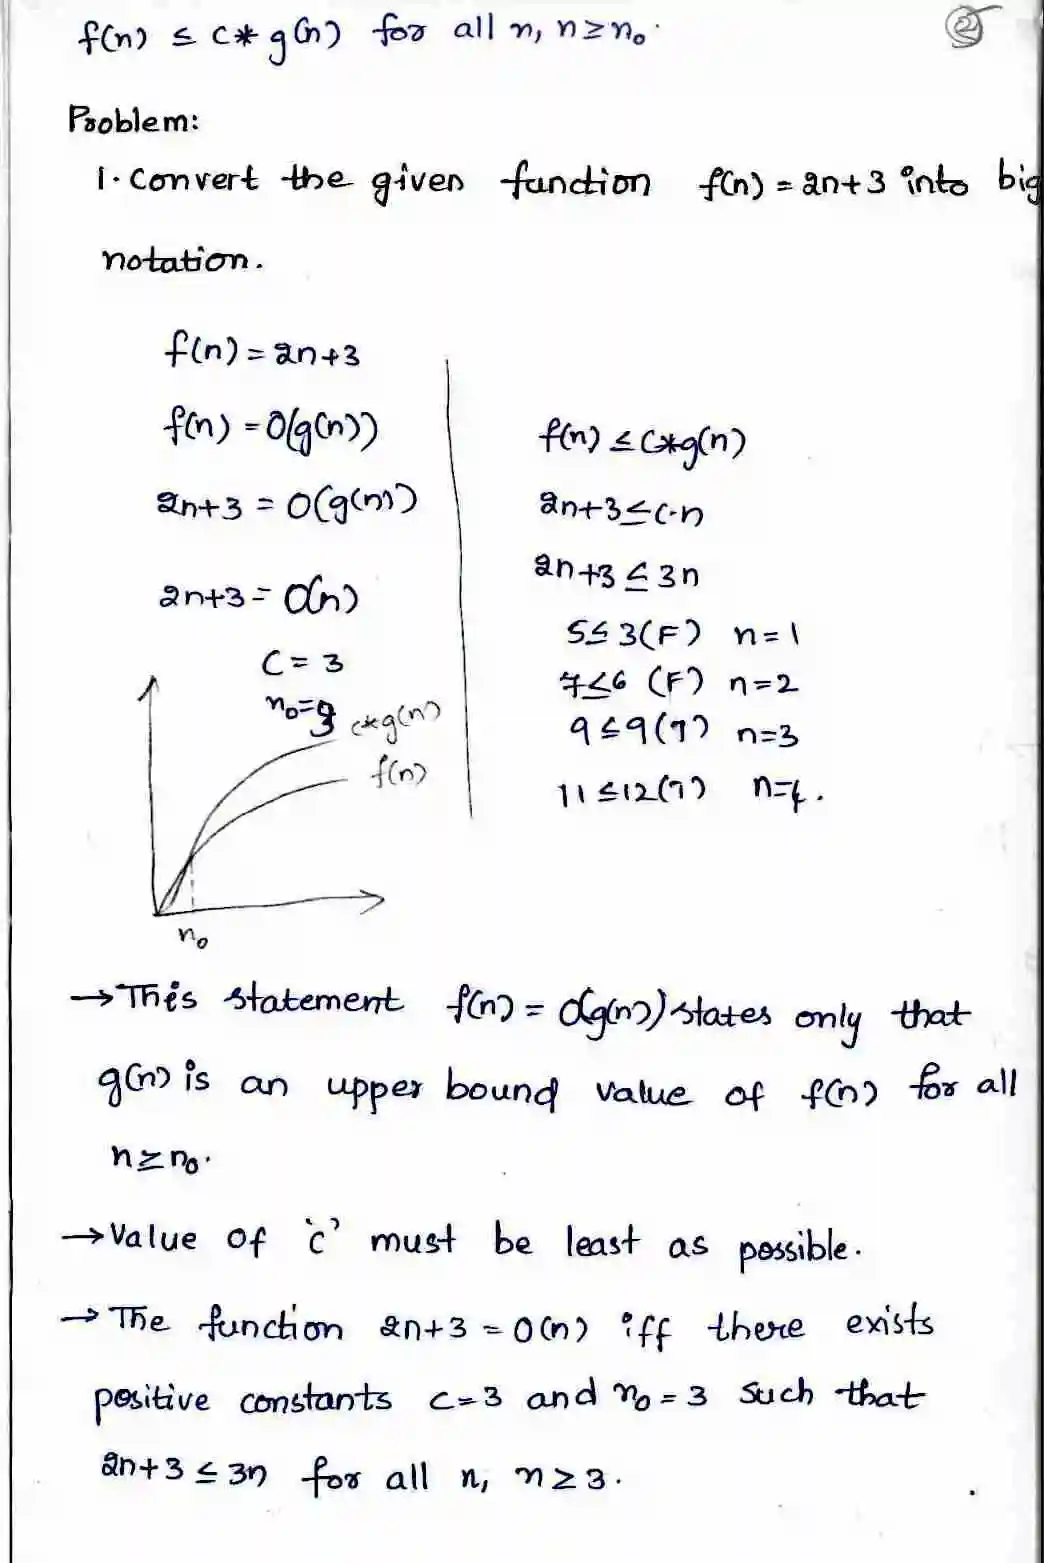 f(n) ≤ c* g(n) for all n, n≥n₀.
2
Problem:
1. Convert the given function f(n) = 2n+3 into big
notation.
f(n) = 2n+3
f(n) = O(g(n))
2n+3 = O(g(n))
2n+3 = O(n)
C = 3
n₀=3
c*g(n)
f(n)
n₀
f(n) ≤ C*g(n)
2n+3≤C·n
2n+3 ≤ 3n
5≤ 3(F) n=1
7≤6 (F) n=2
9≤9(T) n=3
11≤12(T) n=4.
→This statement f(n) = O(g(n)) states only that
g(n) is an upper bound value of f(n) for all
n≥n₀.
→Value of 'c' must be least as possible.
→The function 2n+3 = O(n) iff there exists
positive constants c=3 and n₀=3 such that
2n+3 ≤ 3n for all n, n≥3.